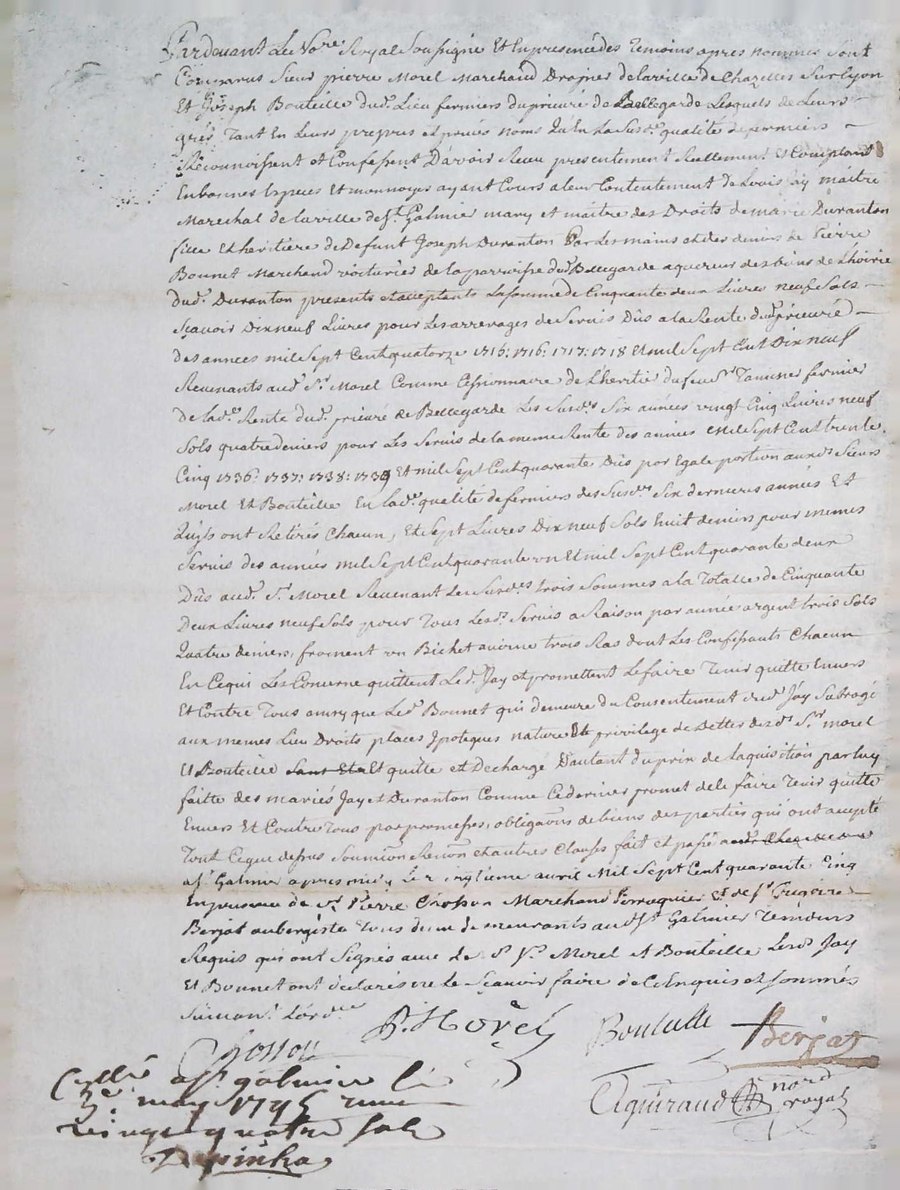 Pardevant Le No.re Royal Soussigné Et Enpresence des Temoins apres nommés Sont
Comparus Sieur pierre Morel Marchand Drapier delaville de Chazelles Sur Lyon
Et Joseph Bouteille dud. Lieu fermiers du prieuré de Bellegarde Lesquels de Leurs
grés Tant En Leurs propres et privés noms qu'En La Susd.e qualité de fermiers
Reconnoissent et Confessent D'avoir Receu presentement Reellement Et Comptant
Enbonnes Especes Et monnoyes ayant Cours a leur Contentement de Louis Jay maitre
Marechal de laville de S.t Galmier mary et maitre des Droits de marie Duranton
fille Et heritiere de Defunt Joseph Duranton Par Les mains et des deniers de Pierre
Bonnet Marchand voiturier de la parroisse dud. Bellegarde aquereur des biens de Lhoirie
dud. Duranton presents et acceptants La somme de Cinquante deux Livres neuf Sols
Sçavoir Dixneuf Livres pour Les arrerages de Servis Dûs a la Rente dud. prieuré
Des années mil Sept Cent quatorze 1715: 1716: 1717: 1718 Et mil Sept Cent Dix neuf
Revenants aud. S.r Morel Comme Cessionnaire de Lheritier du feu S.r fermier
de lad.e Rente dud. prieuré de Bellegarde Les Susd.es Six années vingt Cinq Livres neuf
Sols quatre deniers pour Les Servis de la meme Rente des années mil Sept Cent trente
Cinq 1736: 1737: 1738: 1739 Et mil Sept Cent quarante Dûs par Egale portion auxd.s Sieurs
Morel Et Bouteille En lad.e qualité de fermiers des Susd.es Six dernieres années Et
Quils ont Retirés Chacun, Et Sept Livres Dix neuf Sols huit deniers pour memes
Servis des années mil Sept Cent quarante un Et mil Sept Cent quarante deux
Dûs aud. S.r Morel Revenant Les Susd.es trois Sommes a la Totalle de Cinquante
Deux Livres neuf Sols pour Tous Lesd. Servis a Raison par année argent trois Sols
Quatre deniers, froment un Bichet avoine trois Ras dont Les Confessants Chacun
En Cequi Les Concerne quittent Led. Jay et promettent Le faire Tenir quitte Envers
Et Contre Tous que Led. Bonnet qui demeure du Consentement dud. Jay Subrogé
aux memes Lieu Droits places Ipoteques nature Et privilege de Dettes desd.s S.rs morel
Et Bouteille Et quitte et Dechargé D'autant du prix de Laquisition par luy
faitte des mariés Jay et Duranton Comme Ce dernier promet de le faire Tenir quitte
Envers Et Contre Tous par promesses, obligations de biens des parties qui ont accepté
Tout Ceque dessus Soumission Renon.on et autres Clauses fait et passé
a S.t Galmier apres midy Le avril Mil Sept Cent quarante Cinq
En presence de S.r Pierre Chosson Marchand Perruquier Et de S.r Grégoire
Berjat aubergiste Tous deux demeurants aud. S.t Galmier Temoins
Requis qui ont Signés avec Morel Et Bouteille Jay
Et Bonnet ont déclarés ne le Sçavoir faire de Ce Enquis et Sommés
Suivant Lord.ce
P. Morel Bouteille Berjat
Chosson
Collé a S.t galmier le
3.e may 1745 recu
vingt quatre sols
Aguiraud nore royal